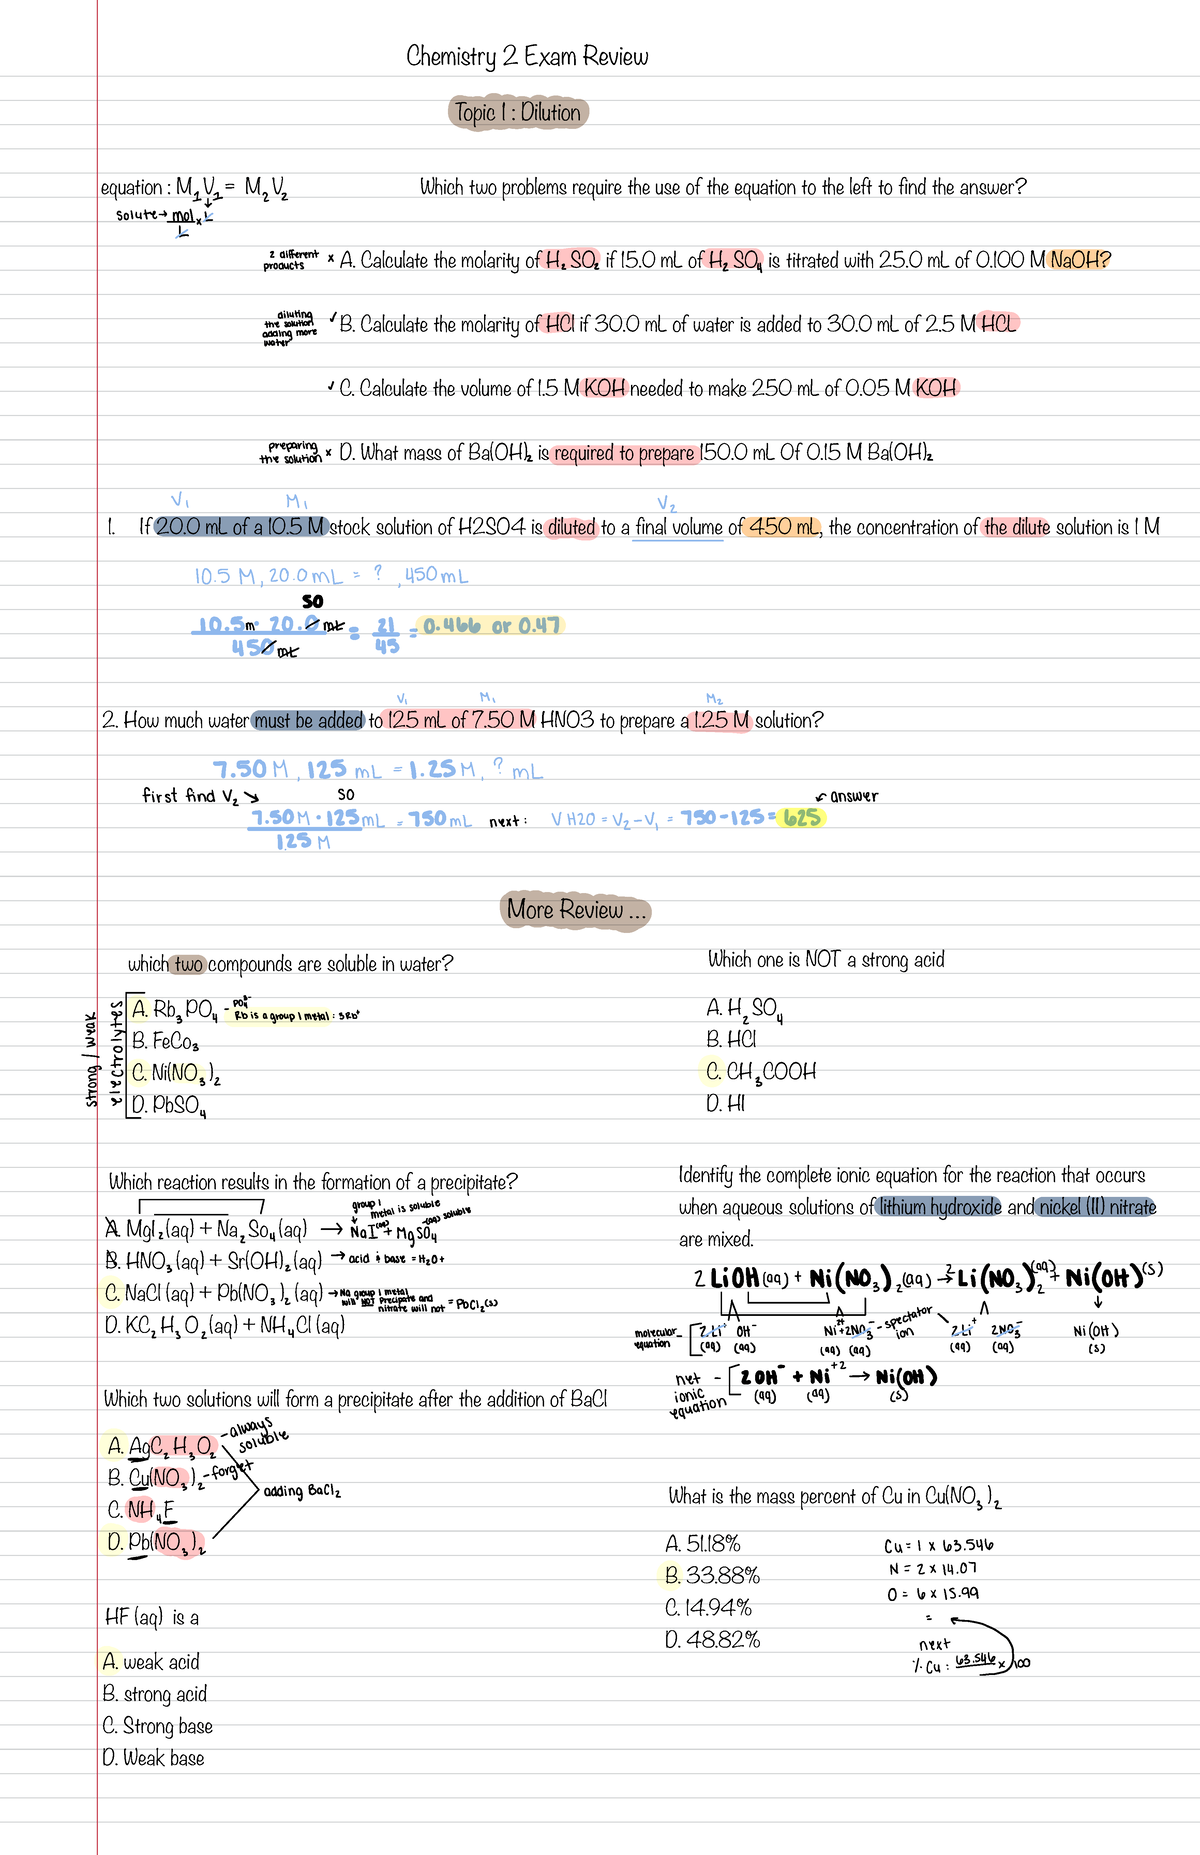 Chemistry 2 Exam Review
Topic 1 : Dilution
equation : M₁V₁ = M₂V₂
solute → mol/L × L
Which two problems require the use of the equation to the left to find the answer?
2 different products × A. Calculate the molarity of H₂SO₂ if 15.0 mL of H₂SO₄ is titrated with 25.0 mL of 0.100 M NaOH?
diluting the solution adding more water ✓ B. Calculate the molarity of HCl if 30.0 mL of water is added to 30.0 mL of 2.5 M HCL
✓ C. Calculate the volume of 1.5 M KOH needed to make 250 mL of 0.05 M KOH
preparing the solution × D. What mass of Ba(OH)₂ is required to prepare 150.0 mL Of 0.15 M Ba(OH)₂
V₁ M₁ V₂
1. If 20.0 mL of a 10.5 M stock solution of H2SO4 is diluted to a final volume of 450 mL, the concentration of the dilute solution is 1 M
10.5 M, 20.0mL = ? , 450mL
so
10.5m · 20.0 mL / 450 mL = 21/45 = 0.466 or 0.47
V₁ M₁ M₂
2. How much water must be added to 125 mL of 7.50 M HNO3 to prepare a 1.25 M solution?
7.50 M, 125 mL = 1.25 M, ? mL
first find V₂ ↘ so ↙ answer
7.50M · 125mL / 1.25 M = 750mL next: V H2O = V₂ - V₁ = 750-125 = 625
More Review ...
which two compounds are soluble in water?
strong / weak electrolytes
A. Rb₃PO₄ - PO₄³⁻
Rb is a group 1 metal : 3Rb⁺
B. FeCo₃
C. Ni(NO₃)₂
D. PbSO₄
Which one is NOT a strong acid
A. H₂SO₄
B. HCl
C. CH₃COOH
D. HI
Which reaction results in the formation of a precipitate?
group 1 metal is soluble
A. MgI₂(aq) + Na₂So₄(aq) → NaI(aq) + MgSO₄ -(aq) soluble
B. HNO₃(aq) + Sr(OH)₂(aq) → acid & base = H₂O+
C. NaCl(aq) + Pb(NO₃)₂(aq) → Na group 1 metal will NOT Precipate and nitrate will not = PbCl₂(s)
D. KC₂H₃O₂(aq) + NH₄Cl(aq)
Identify the complete ionic equation for the reaction that occurs
when aqueous solutions of lithium hydroxide and nickel (II) nitrate
are mixed.
2 LiOH(aq) + Ni(NO₃)₂(aq) → 2 Li(NO₃)₂(aq) + Ni(OH)(s)
molecular equation - [ 2Li⁺ (aq) OH⁻ (aq) Ni²⁺ (aq) + 2NO₃⁻ (aq) - spectator ion 2Li⁺ (aq) 2NO₃⁻ (aq) Ni(OH) (s)
net ionic equation - [ 2OH⁻ (aq) + Ni⁺² (aq) → Ni(OH) (s)
Which two solutions will form a precipitate after the addition of BaCl
A. AgC₂H₃O₂ - always soluble
B. Cu(NO₃)₂ - forget
C. NH₄F
D. Pb(NO₃)₂
adding BaCl₂
What is the mass percent of Cu in Cu(NO₃)₂
A. 51.18%
B. 33.88%
C. 14.94%
D. 48.82%
Cu = 1 × 63.546
N = 2 × 14.07
O = 6 × 15.99
=
next
% Cu : 63.546 / × 100
HF (aq) is a
A. weak acid
B. strong acid
C. Strong base
D. Weak base